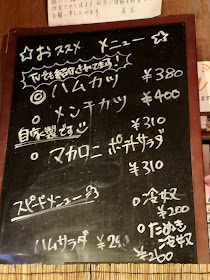 ☆おススメ メニュー☆
TVでも紹介されてます!
◎ハムカツ ¥380
○メンチカツ ¥400
自家製です♡ ¥310
○マカロニ ポテトサラダ
¥310
スピードメニュー
○冷奴
¥200
○たぬき
冷奴
ハムサラダ ¥260